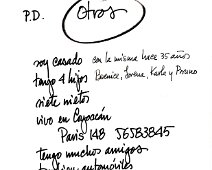 P.D. Otros
soy casado con la misma hace 35 años
tengo 4 hijos Berenice, Lorena, Karla y
siete nietos
vivo en Coyoacán
Paris 148 56583845
tengo muchos amigos
automóviles